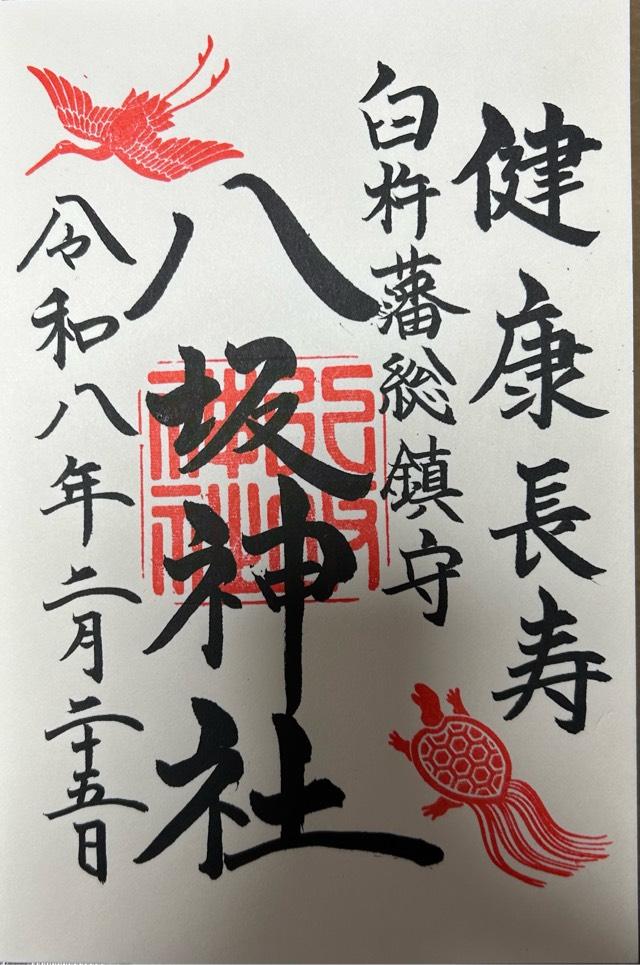 健康長寿
臼杵藩総鎮守
八坂神社
八坂神社
令和八年二月二十五日